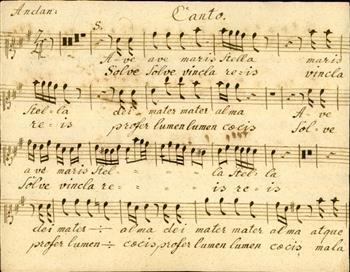 Andan: Canto.
S.
A-ve ave maris Stella maris
Solve Solve vincla re=is vincla
Stel-la dei mater mater alma A-ve
re=is profer lumen lumen cœcis Sol=ve
ave maris Stel- - - - la Stella
Solve vincla re= = = = is re=is
dei mater ÷ alma dei mater mater alma atque
profer lumen ÷ cœcis profer lumen lumen cœcis mala